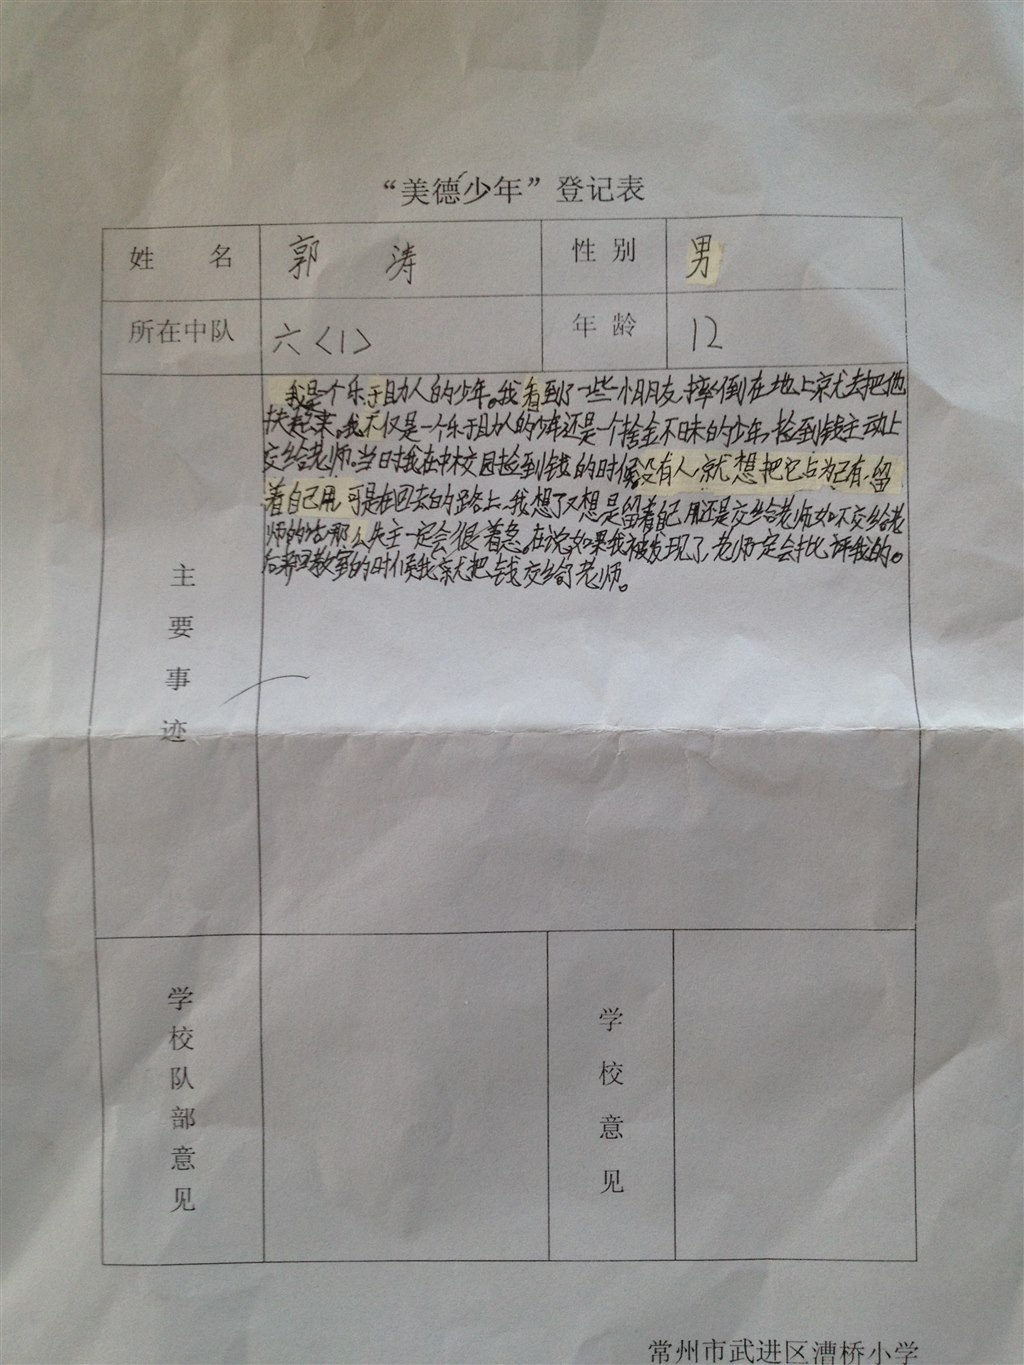 “美德少年”登记表
姓 名 郭 涛 性 别 男
所在中队 六〈1〉 年 龄 12
主要事迹
我是一个乐于助人的少年。我看到了一些小朋友,摔倒在地上京尤去把他
扶起来。我不仅是一个乐于助人的少年还是一个捨金不昧的少年,捡到钱主动上
交给老师。当时我在中校园捡到钱的时候没有人,就想把它占为己有,留
着自己用,可是在回去的路上,我想了又想是留着自己用还是交给老师,如不交给老
师的话那么失主一定会很着急。在说,如果我被发现了,老师一定会批评我的。
教室的时候我就把钱交给老师。
学校队部意见
学校意见
常州市武进区漕桥小学